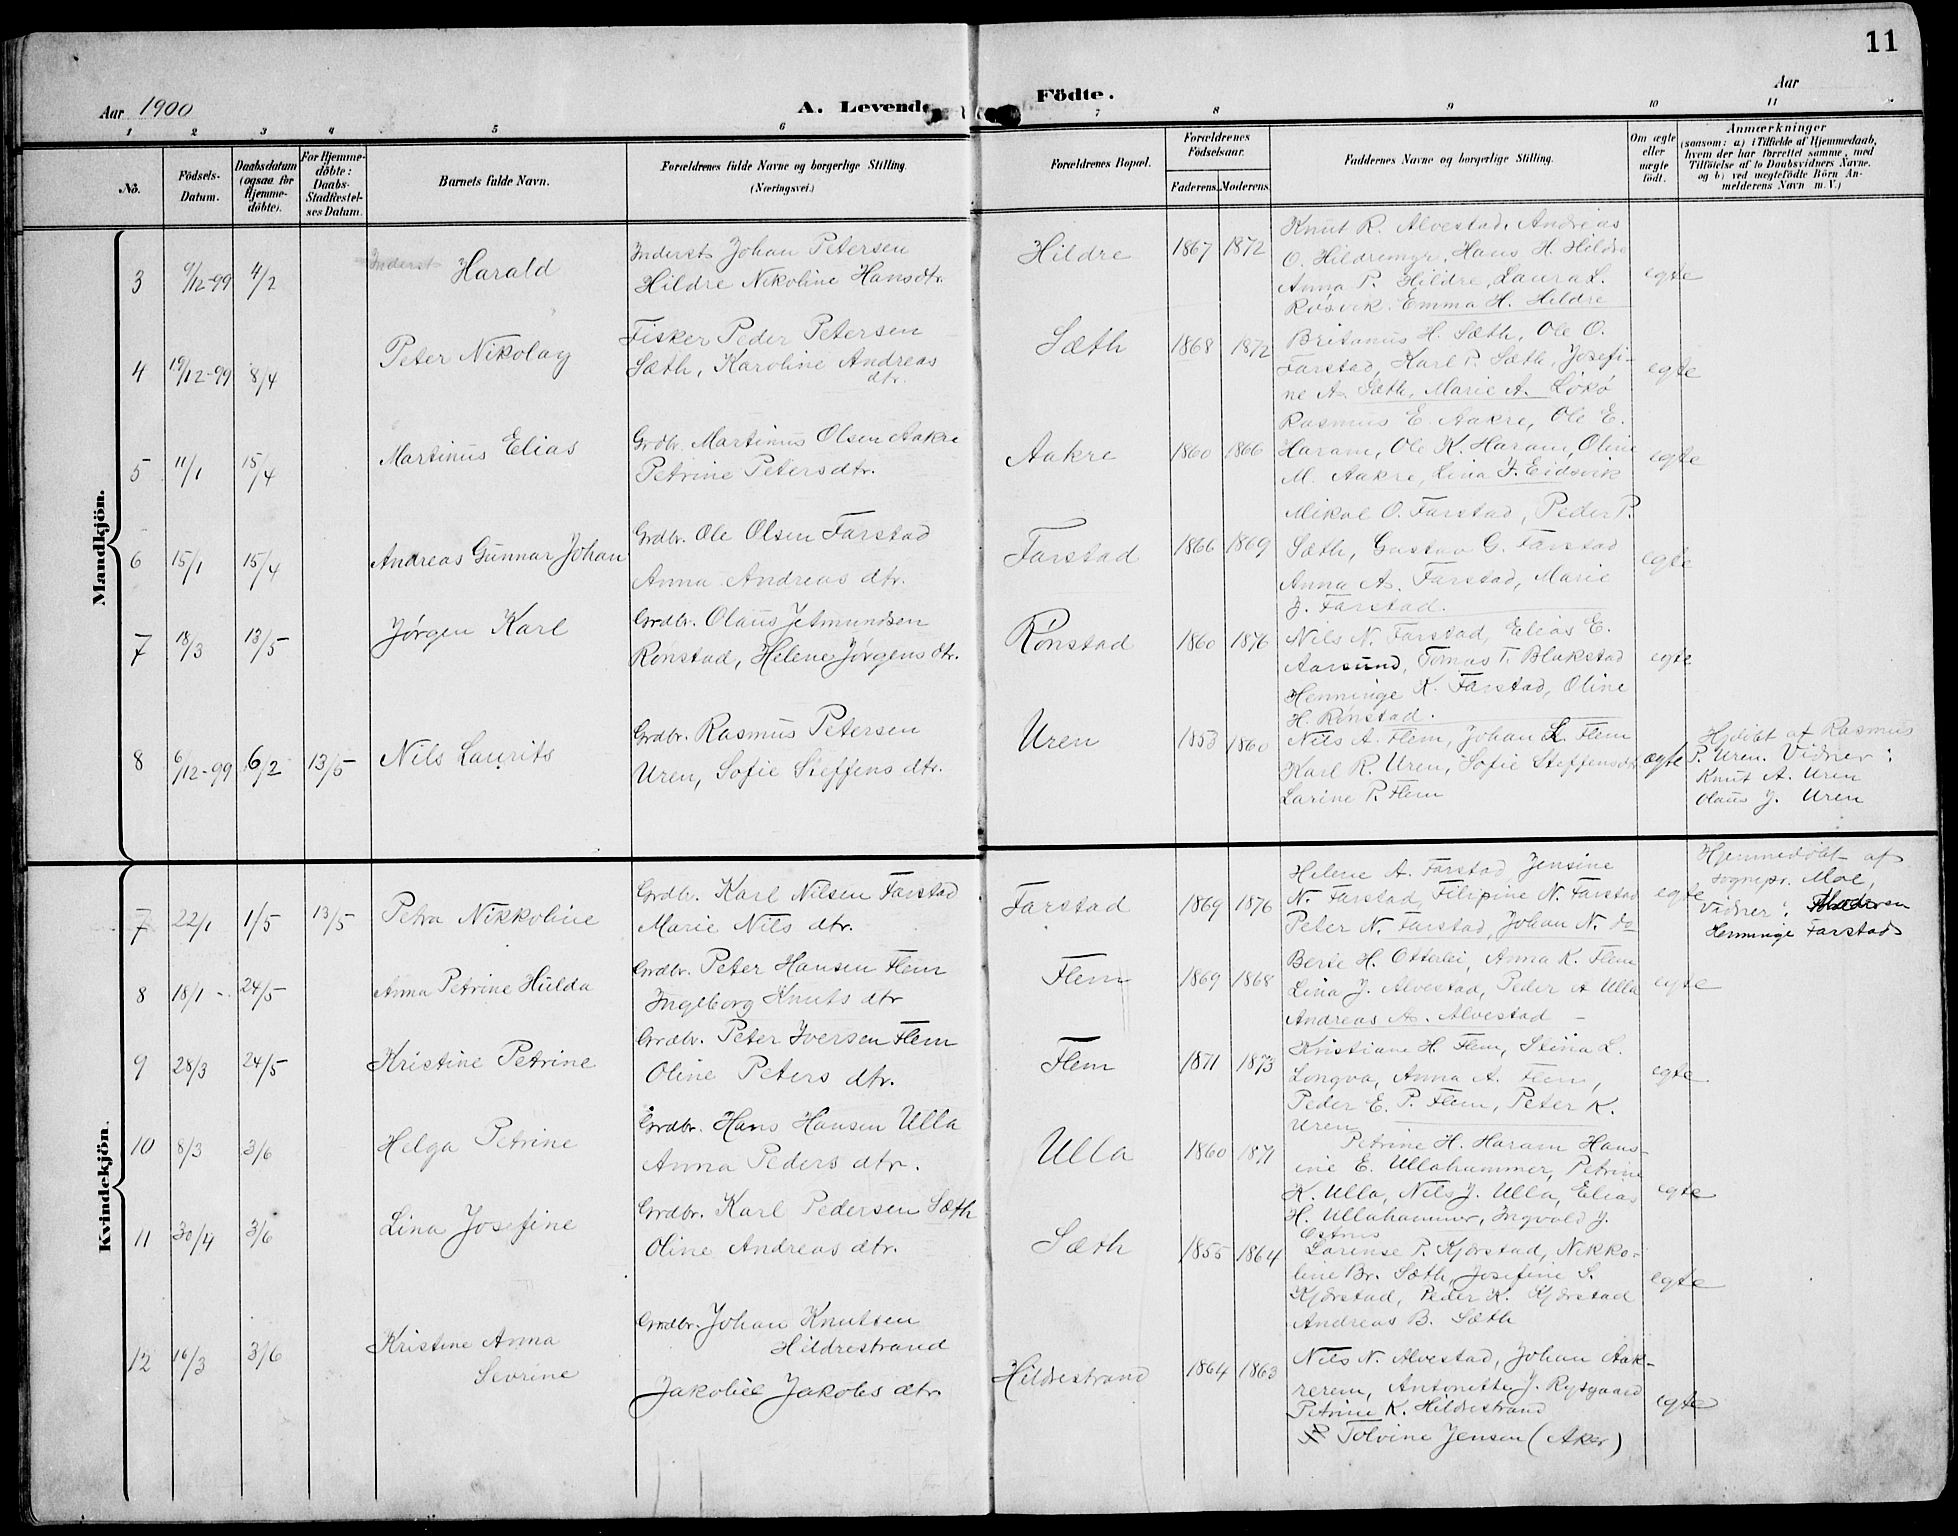 11
Aar 1900
A. Levende
Födte.
Aar
1 2 3 4 5 6 7 8 9 10 11
No.
Födsels-
Datum.
Daabsdatum
(ogsaa for
Hjemme-
döbte).
For Hjemme-
döbte:
Daabs-
Stadfæstel-
ses Datum.
Barnets fulde Navn.
Forældrenes fulde Navne og borgerlige Stilling.
(Næringsvei.)
Forældrenes Bopæl.
Forældrenes
Födselsaar.
Faderens. Moderens.
Faddernes Navne og borgerlige Stilling.
Om ægte
eller
uægte
födt.
Anmærkninger
(saasom: a) i Tilfælde af Hjemmedaab,
hvem der har forrettet samme, med
Tilföielse af to Daabsvidners Navne,
og b) ved uægtefödte Börn An-
melderens Navn m. V.)
Mandkjön.
3 9/12-99 4/2 Inderst Harald
Inderst Johan Petersen
Hildre Nikoline Hansdtr.
Hildre 1867 1872
Knut R. Alvestad, Andreas
O. Hildremyr, Hans H. Hildre
Anna P. Hildre, Laura L.
Røsvik. Emma H. Hildre
egte
4 19/12-99 8/4 Peter Nikolay
Fisker Peder Petersen
Sæth, Karoline Andreas
dtr.
Sæth 1868 1872
Britanus H. Sæth, Ole O.
Farstad, Karl P. Sæth, Josefi-
ne A. Sæth, Marie A. Løkø
egte
5 11/1 15/4 Martinus Elias
Grdbr. Martinus Olsen Aakre
Petrine Petersdtr.
Aakre 1860 1866
Rasmus E. Aakre, Ole E.
Haram, Ole K. Haram, Oline
M. Aakre, Lina J. Eidsvik
egte
6 15/1 15/4 Andreas Gunnar Johan
Grdbr. Ole Olsen Farstad
Anna Andreas dtr.
Farstad 1866 1869
Mikal O. Farstad, Peder P.
Sæth, Gustav G. Farstad
Anna A. Farstad, Marie
J. Farstad.
egte
7 18/3 13/5 Jørgen Karl
Grdbr. Olaus Jetmundsen
Rønstad, Helene Jørgensdtr.
Rønstad 1860 1876
Nils N. Farstad, Elias E.
Aarsund, Tomas T. Blakstad
Henninge K. Farstad, Oline
H. Rønstad.
egte
8 6/12-99 6/2 13/5 Nils Laurits
Grdbr. Rasmus Petersen
Uren, Sofie Steffens dtr.
Uren 1853 1860
Nils A. Flem, Johan L. Flem
Karl R. Uren, Sofie Steffensdtr
Larine P. Flem
ægte
Hjdøbt af Rasmus
P. Uren. Vidner:
Knut A. Uren
Olaus J. Uren
Kvindekjön.
7 22/1 1/5 13/5 Petra Nikkoline
Grdbr. Karl Nilsen Farstad
Marie Nils dtr.
Farstad 1869 1876
Helene A. Farstad Jensine
N. Farstad, Filipine N. Farstad
Peter N. Farstad, Johan N. do
egte
Hjemmedøbt af
sognepr. Moe,
Vidner: Moderen
Henninge Farstad
8 18/1 - 24/5 Anna Petrine Hulda
Grdbr. Peter Hansen Flem
Ingeborg Knuts dtr
Flem 1869 1868
Berte H. Otterlei, Anna K. Flem
Lina J. Alvestad, Peder A Ulla
Andreas A. Alvestad -
egte
9 28/3 24/5 Kristine Petrine
Grdbr. Peter Iversen Flem
Oline Peters dtr.
Flem 1871 1873
Kristiane H. Flem, Stina L.
Longva, Anna A. Flem,
Peder E. P. Flem, Peter K.
Uren
egte
10 8/3 3/6 Helga Petrine
Grdbr. Hans Hansen Ulla
Anna Peders dtr.
Ulla 1860 1871
Petrine H. Haram Hans-
ine E. Ullahammer, Petrine
K. Ulla, Nils J. Ulla, Elias
H. Ullahammer, Ingvald J.
Østnes
egte
11 30/4 3/6 Lina Josefine
Grdbr. Karl Pedersen Sæth
Oline Andreas dtr.
Sæth 1855 1864
Lorense P. Kjørstad, Nikko-
line Br. Sæth, Josefine S.
Kjørstad, Peder K. Kjørstad
Andreas B. Sæth
egte
12 16/3 3/6 Kristine Anna
Sevrine
Grdbr. Johan Knutsen
Hildrestrand
Jakobie Jakobs dtr.
Hildrestrand 1864 1863
Nils N. Alvestad, Johan Aak-
rerem, Antonette J. Rypgaard
Petrine K. Hildrestrand
Tolvine Jensen (Aker)
egte